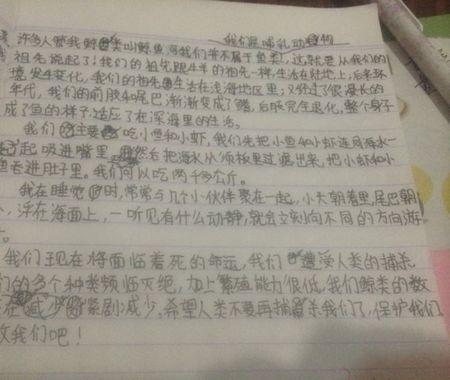 许多人管我鲸类叫鲸鱼可我们并不属于鱼类, 我们是哺乳动物 这就要从我们的
祖先说起了!我们的祖先跟牛羊的祖先一样生活在陆地上,后来环
境发生变化,我们的祖先生活在浅海地区里,又经过了很漫长的
年代,我们的前肢和尾巴渐渐变成了鳍,后肢完全退化,整个身子
成了鱼的样子,适应了在深海里的生活。
我们主要吃小鱼和小虾,我们先把小鱼和小虾连同海水一
起吸进嘴里,然后把海水从须板里过滤出来,把小虾和小
鱼吞进肚子里。我们可以吃两千多公斤。
我在睡觉时,常常与几个小伙伴聚在一起,小头朝着里,尾巴朝
,浮在海面上,一听见有什么动静,就会立刻向不同的方向游
。
我们现在将面临着死的命运,我们遭受人类的捕杀
们的多个种类频临灭绝,加上繁殖能力很低,我们鲸类的数
在紧剧减少,希望人类不要再捕杀我们了,保护我们
放我们吧!